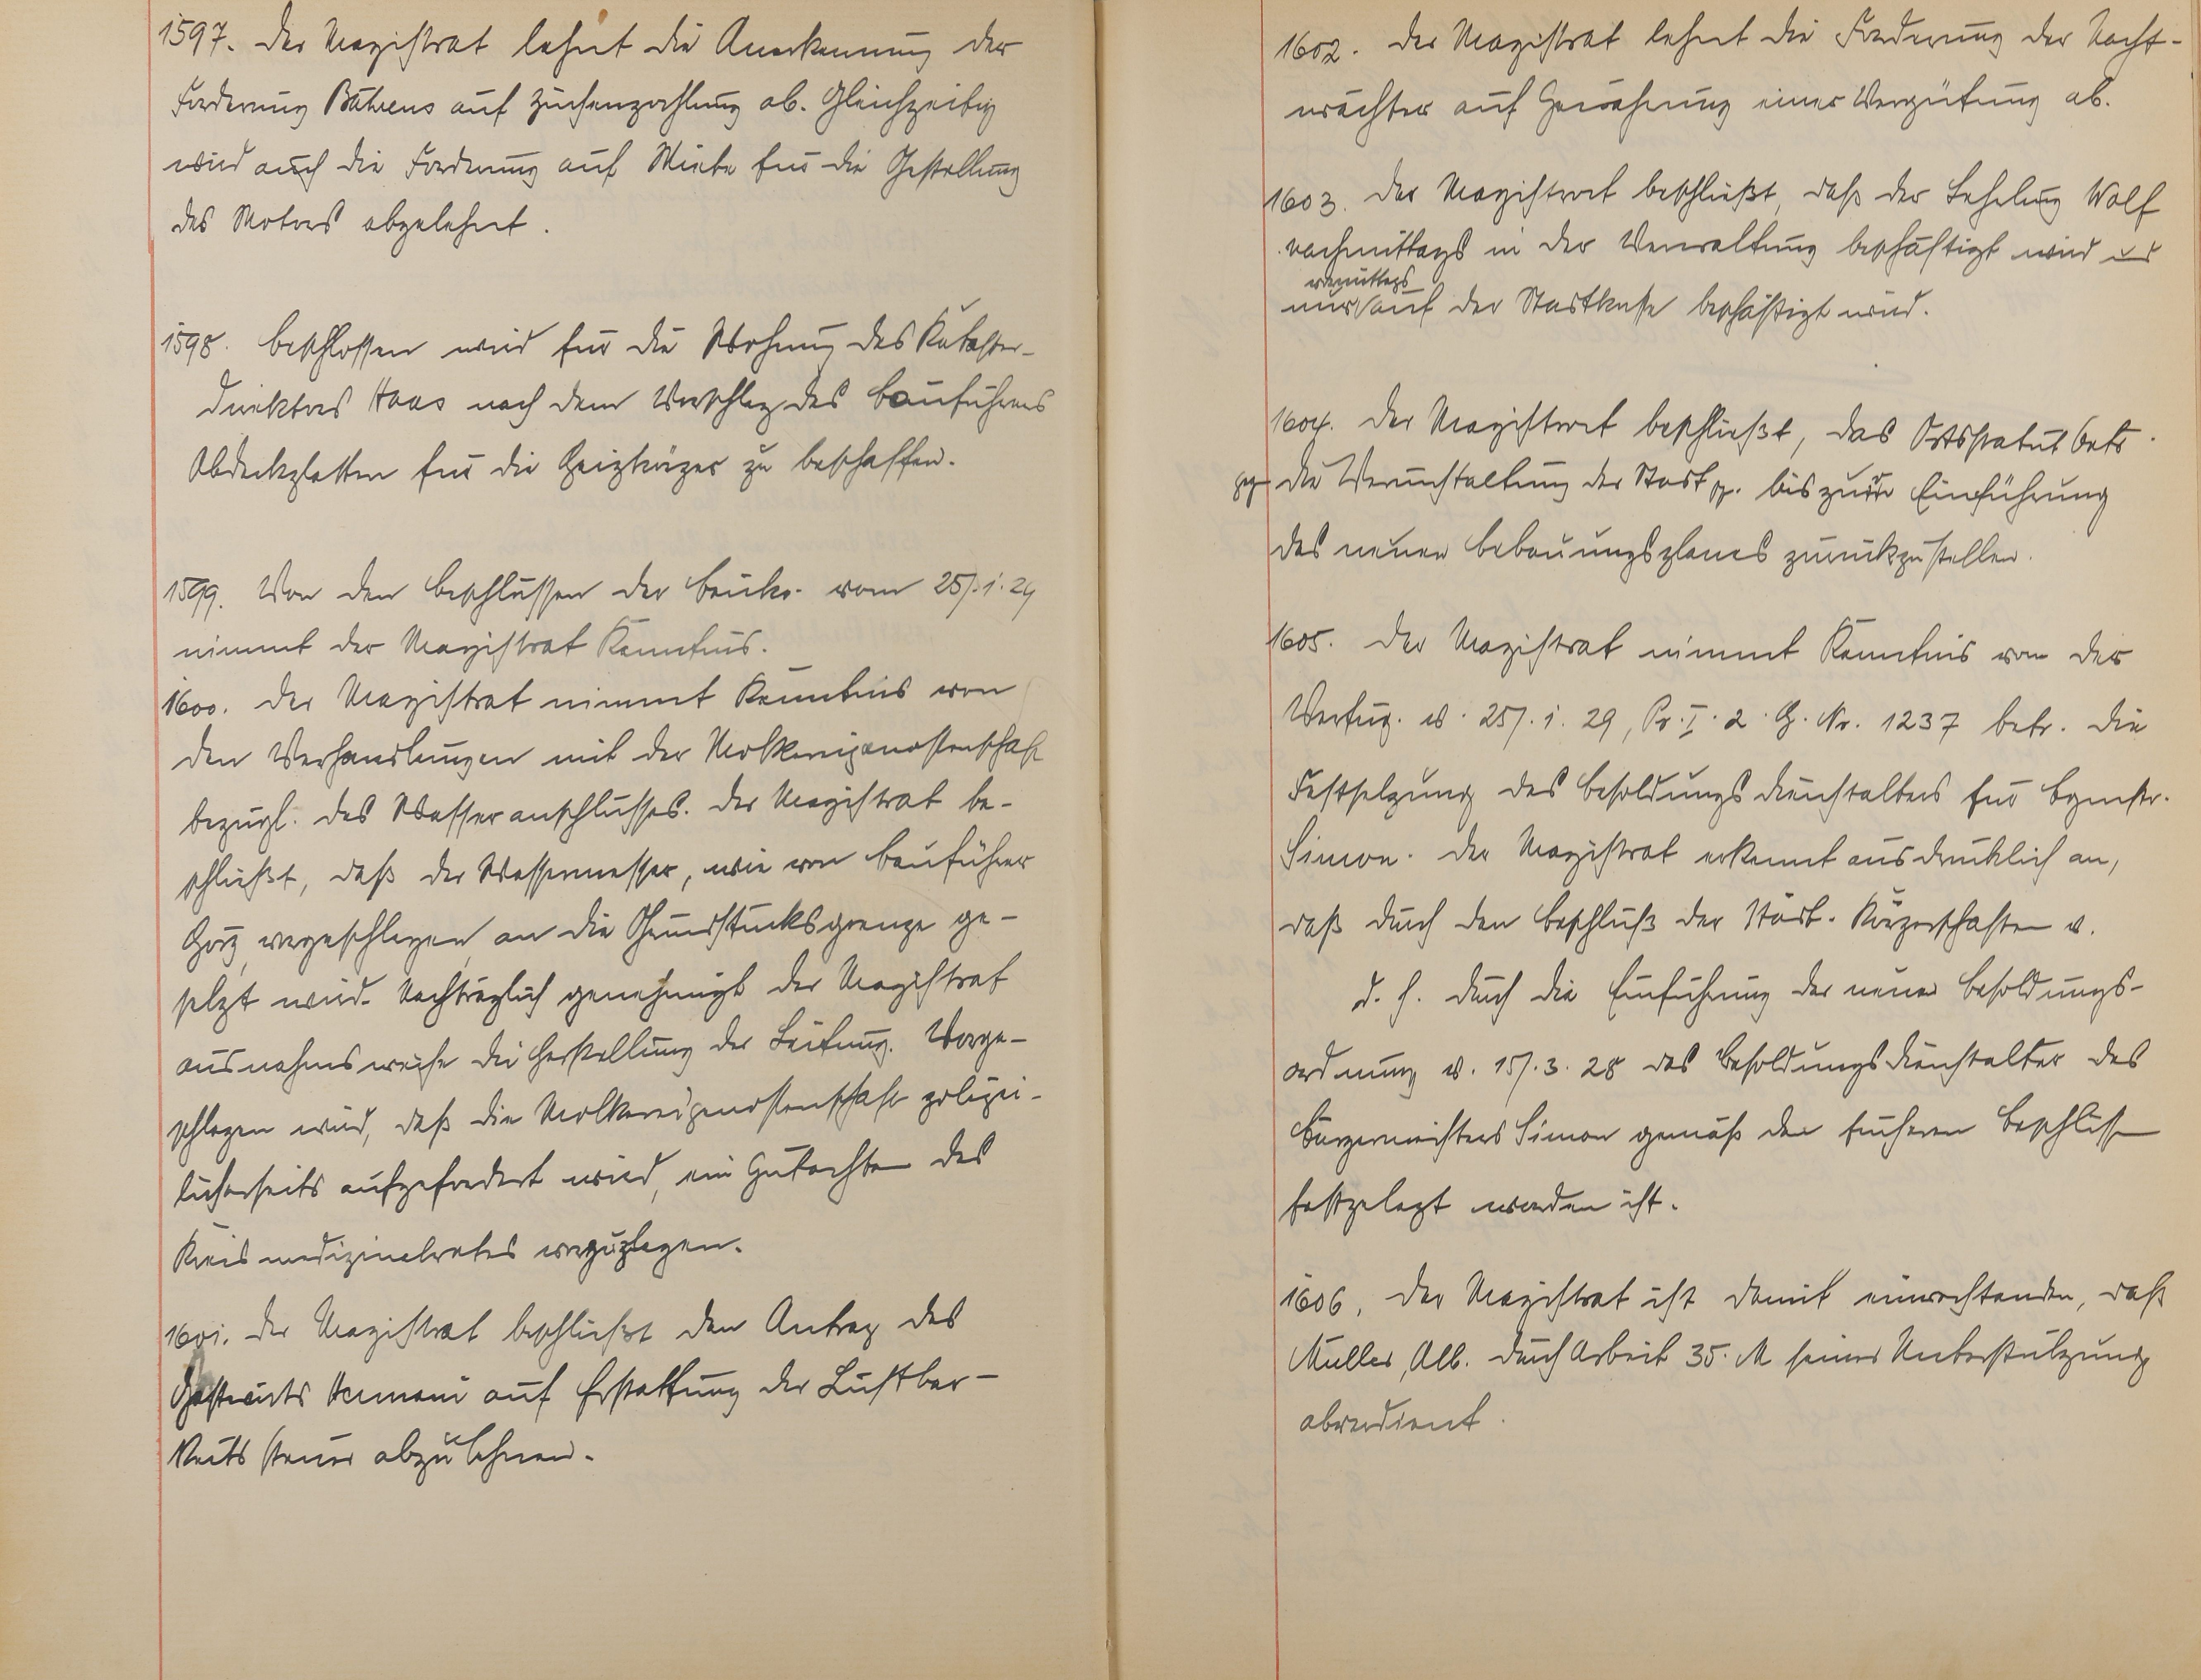 1597. Der Magistrat lehnt die Anerkennung der
Forderung Bährens auf Zinsenzahlung ab. Gleichzeitig
wird auch die Forderung auf Miete für die Gestellung
des Motors abgelehnt.
1598. Beschlossen wird für die Wohnung des Kataster-
direktors Haas nach dem Vorschlag des Bauführers
Abdeckplatten für die Heizkörper zu beschaffen.
1599. Von den Beschlüssen der Bauko. vom 25.1.29
nimmt der Magistrat Kenntnis.
1600. Der Magistrat nimmt Kenntnis von
den Verhandlungen mit der Molkereigenossenschaft
bezügl. des Wasseranschlusses. Der Magistrat be-
schließt, daß der Wassermesser, wie von Bauführer
vorgeschlagen, an die Grundstücksgrenze ge-
setzt wird. Nachträglich genehmigt der Magistrat
ausnahmsweise die Herstellung der Leitung. Vorge-
schlagen wird, daß die Molkereigenossenschaft polizei-
licherseits aufgefordert wird, ein Gutachten des
Kreismedizinalrates vorzulegen.
1601. Der Magistrat beschließt den Antrag des
Gastwirts Hermani auf Erstattung der Lustbar-
keitssteuer abzulehnen.
1602. Der Magistrat lehnt die Forderung der Nacht-
wächter auf Gewährung einer Vergütung ab.
1603. Der Magistrat beschließt, daß der Lehrling Wolf
nachmittags in der Verwaltung beschäftigt wird und
vormittags
nur auf der Stadtkasse beschäftigt wird.
1604. Der Magistrat beschließt, das Ortsstatut betr.
gg. die Verunstaltung der Stadt pp. bis zur Einführung
des neuen Bebauungsplanes zurückzustellen.
1605. Der Magistrat nimmt Kenntnis von der
Verfüg. v. 25.1.29, Pr. I. 2. G. Nr. 1237 betr. die
Festsetzung des Besoldungsdienstalters für Bgmstr.
Simon. Der Magistrat erkennt ausdrücklich an,
daß durch den Beschluß der städt. Körperschaften v.
d. h. durch die Einführung der neuen Besoldungs-
ordnung v. 15.3.28 das Besoldungsdienstalter des
Bürgermeisters Simon gemäß den früheren Beschlüssen
festgelegt worden ist.
1606. Der Magistrat ist damit einverstanden, daß
Müller, Alb. durch Arbeit 35. M seiner Unterstützung
abverdient.